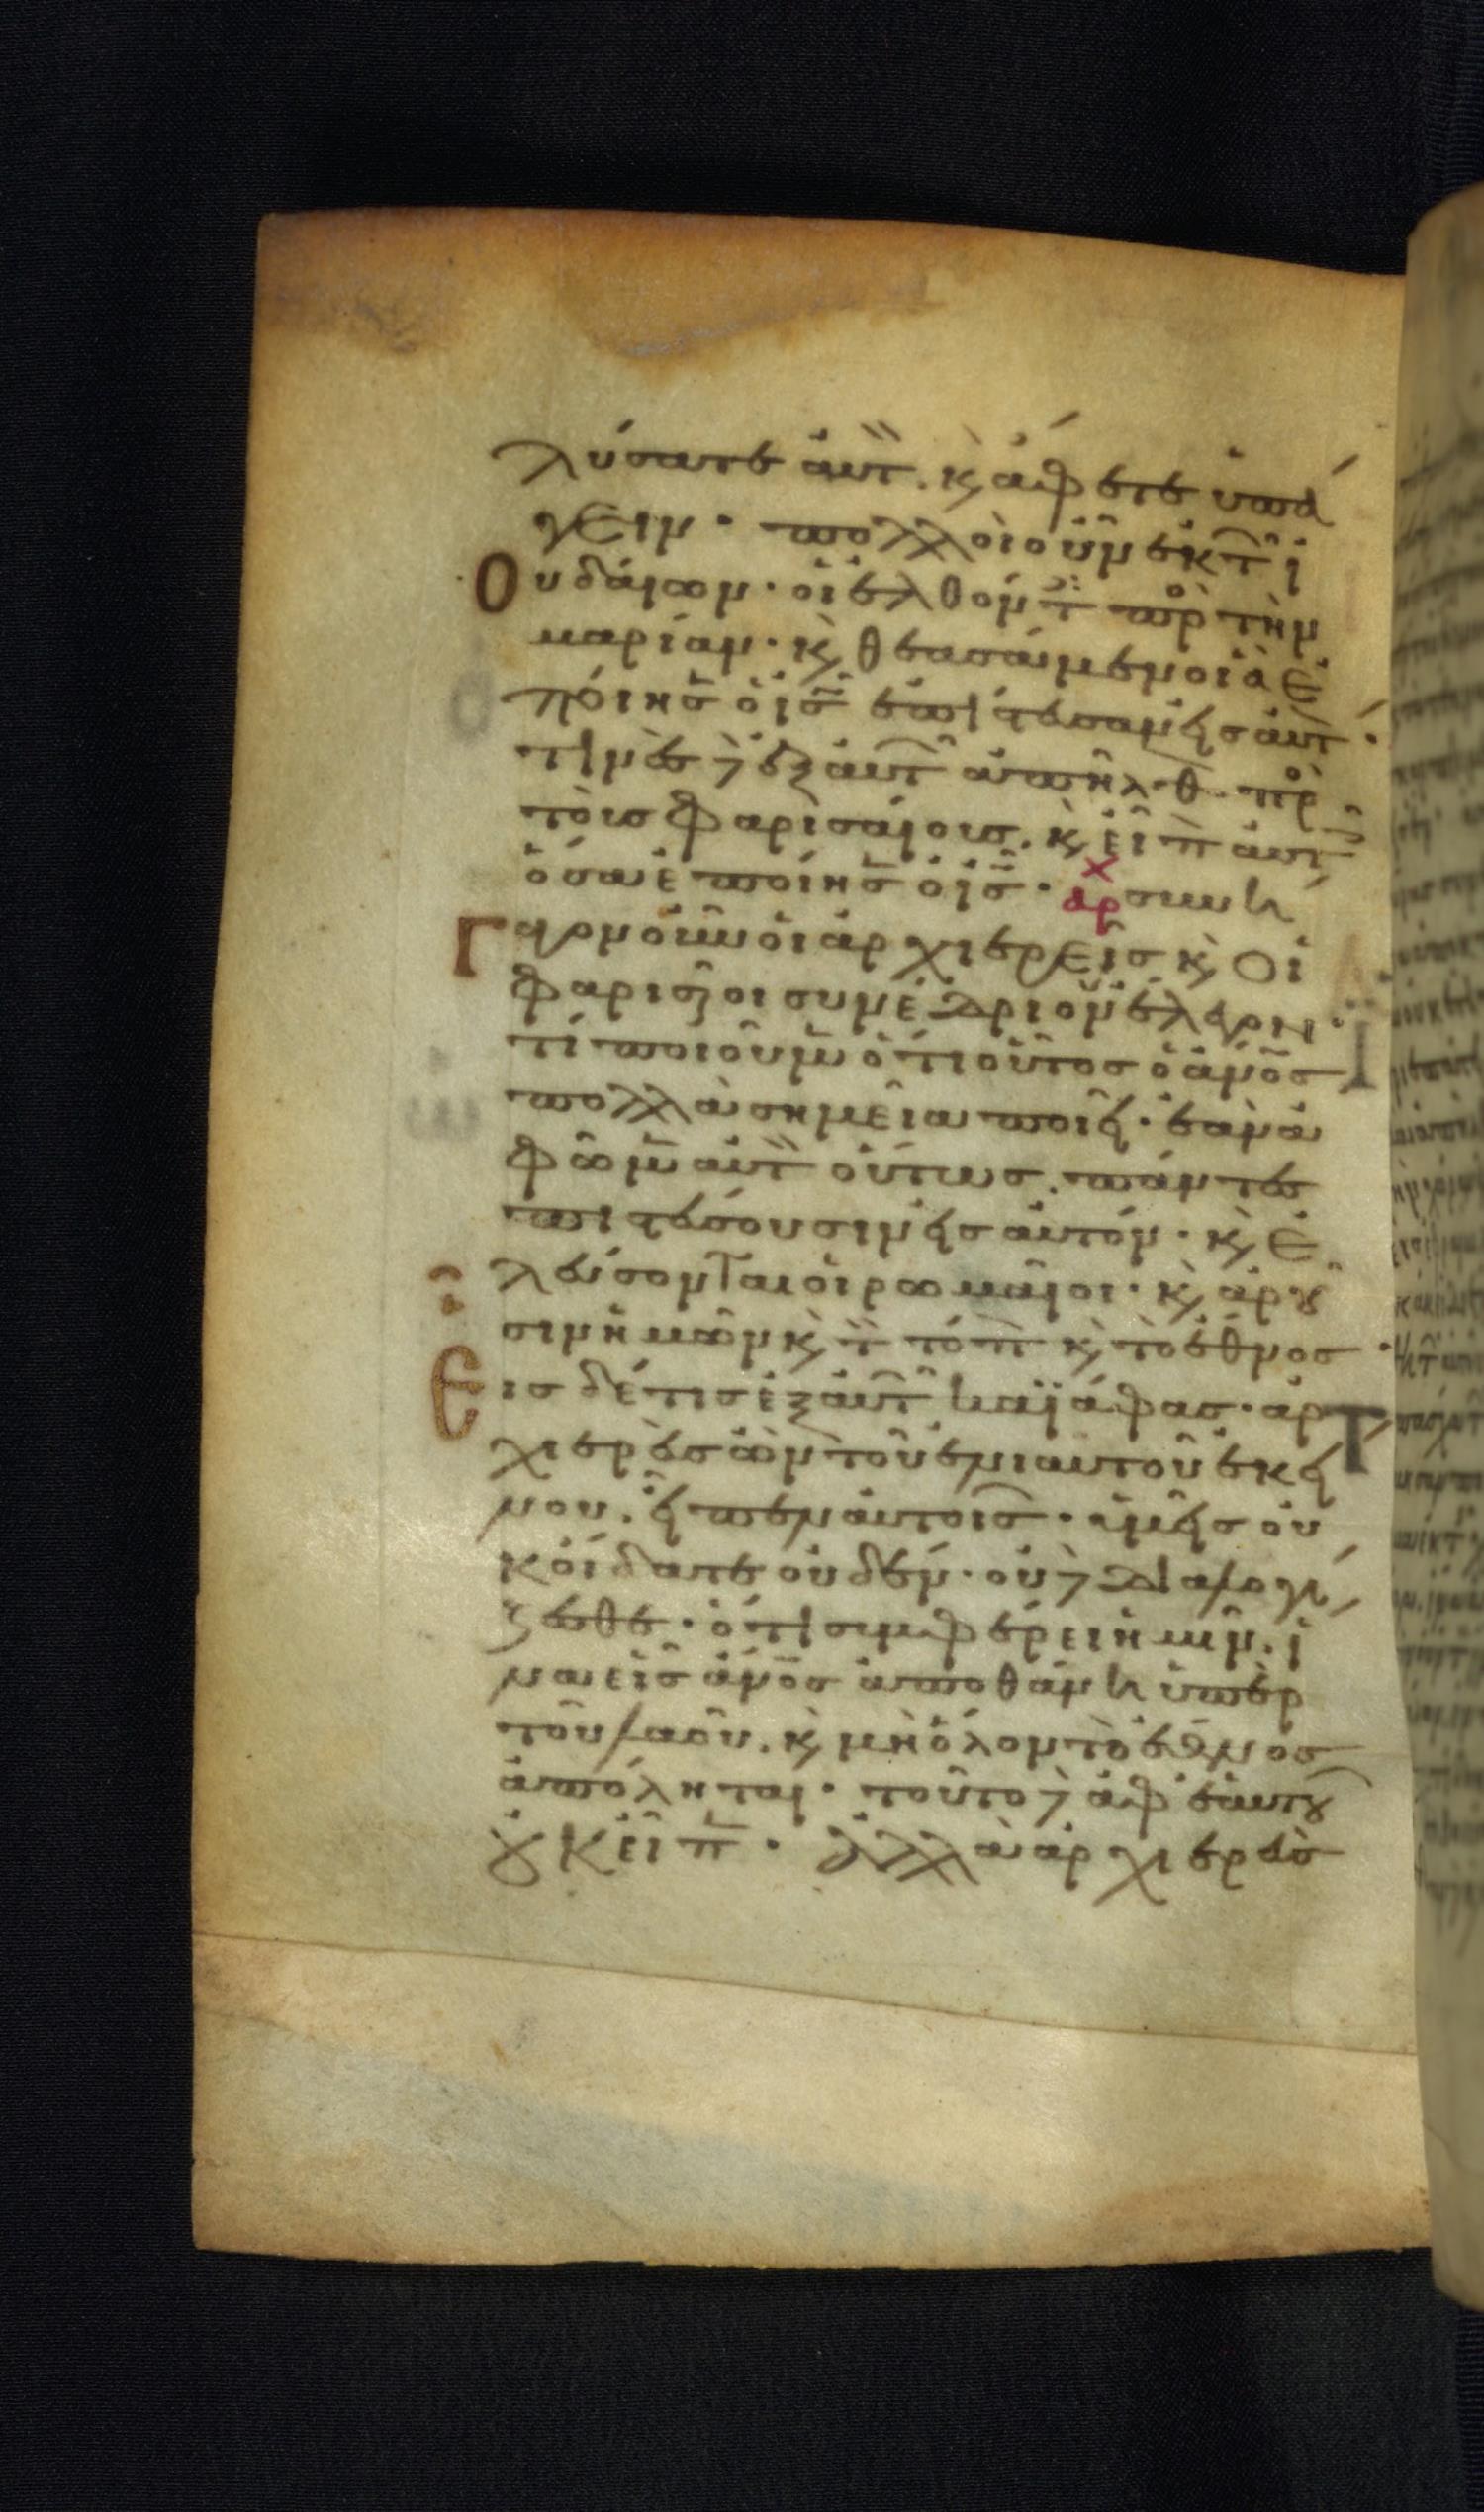 λύσατε αὐτ. κ̀ ἄφετε ὑπά
γειν· πολλοὶ οὖν ἐκ τ ἰ
ουδάιων· οἱ ἐλθόντ πρ τὴν
μαρίαν· κ̀ θεασάμενοι ἃ ἐ
πόιησ ὁ ισ ἐπίστευσαν εἰς αὐτ·
τινὲς δὲ ἐξ αὐτ ἀπῆλθ πρ
τοὺσ φαρισάιους. κ̀ εἶπ αὐτ
ὅσα ἐποίησ ὁ ισ· αρχ συνή
γαγον οὖν οἱ ἀρχιερεῖσ κ̀ οἱ
φαρισαῖοι συνέδριον κ̀ ἔλεγον·
τί ποιοῦμεν ὅτι οὗτοσ ὁ ἀνοσ
πολλὰ σημεῖα ποιεῖ· ἐὰν ἀ
φῶμεν αὐτ οὕτωσ. πάντες
πιστεύσουσιν εἰς αὐτόν· κ̀ ἐ
λεύσονται οἱ ρωμαῖοι· κ̀ ἀροῦ
σιν ἡμῶν κ̀ τ τόπ κ̀ τὸ ἔθνοσ·
εισ δέ τισ ἐξ αὐτ καϊάφασ· ἀρ
χιερεὺς ὢν τοῦ ἐνιαυτοῦ ἐκεί
νου. εἶπεν αὐτοῖσ· ὑμεῖς οὐ
κ οἴδατε οὐδέν· οὐδὲ διαλογί
ζεσθε· ὅτι συμφέρει ἡμῖν. ἵ
να εἷσ ἀνοσ ἀποθάνη ὑπὲρ
τοῦ λαοῦ. κ̀ μὴ ὅλον τὸ ἔθνοσ
ἀπόληται· τοῦτο δὲ ἀφ ἑαυτοῦ
οὐκ εἶπ· ἀλλὰ ἀρχιερεὺς